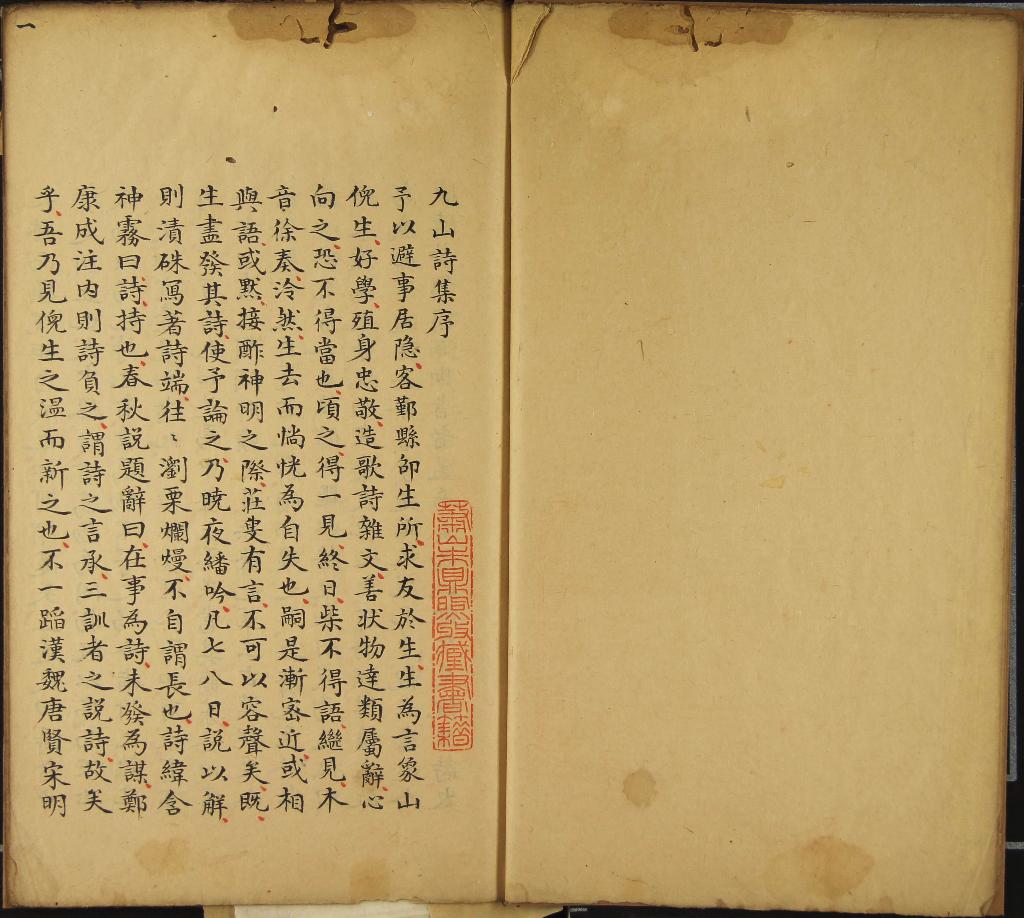 九山詩集序
予以避事居隐、客鄞縣卲生所、求友於生、生為言象山
倪生、好學、殖身忠敬、造歌詩雜文、善状物達類屬辭、心
向之、恐不得當也、頃之、得一見、終日、柴不得語、繼見、木
音徐奏、泠然、生去而惝恍為自失也、嗣是漸宻近、或相
與語、或黙、接酢神明之際、莊叟有言、不可以容聲矣、既、
生盡發其詩、使予論之、乃曉夜繙吟、凡七八日、説以觧、
則漬硃寫著詩端、往〻瀏栗爛熳、不自謂長也、詩緯含
神霧曰、詩、持也、春秋説題辭曰、在事為詩、未發為謀、鄭
康成注内則詩負之、謂詩之言承、三訓者之説詩、故矣
乎、吾乃見倪生之温而新之也、不一蹈漢魏唐賢宋明
蕭山朱鼎煦收藏書籍
一